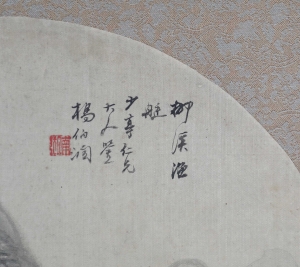 柳溪漁
艇
少亭仁兄
大人鑒
楊伯潤